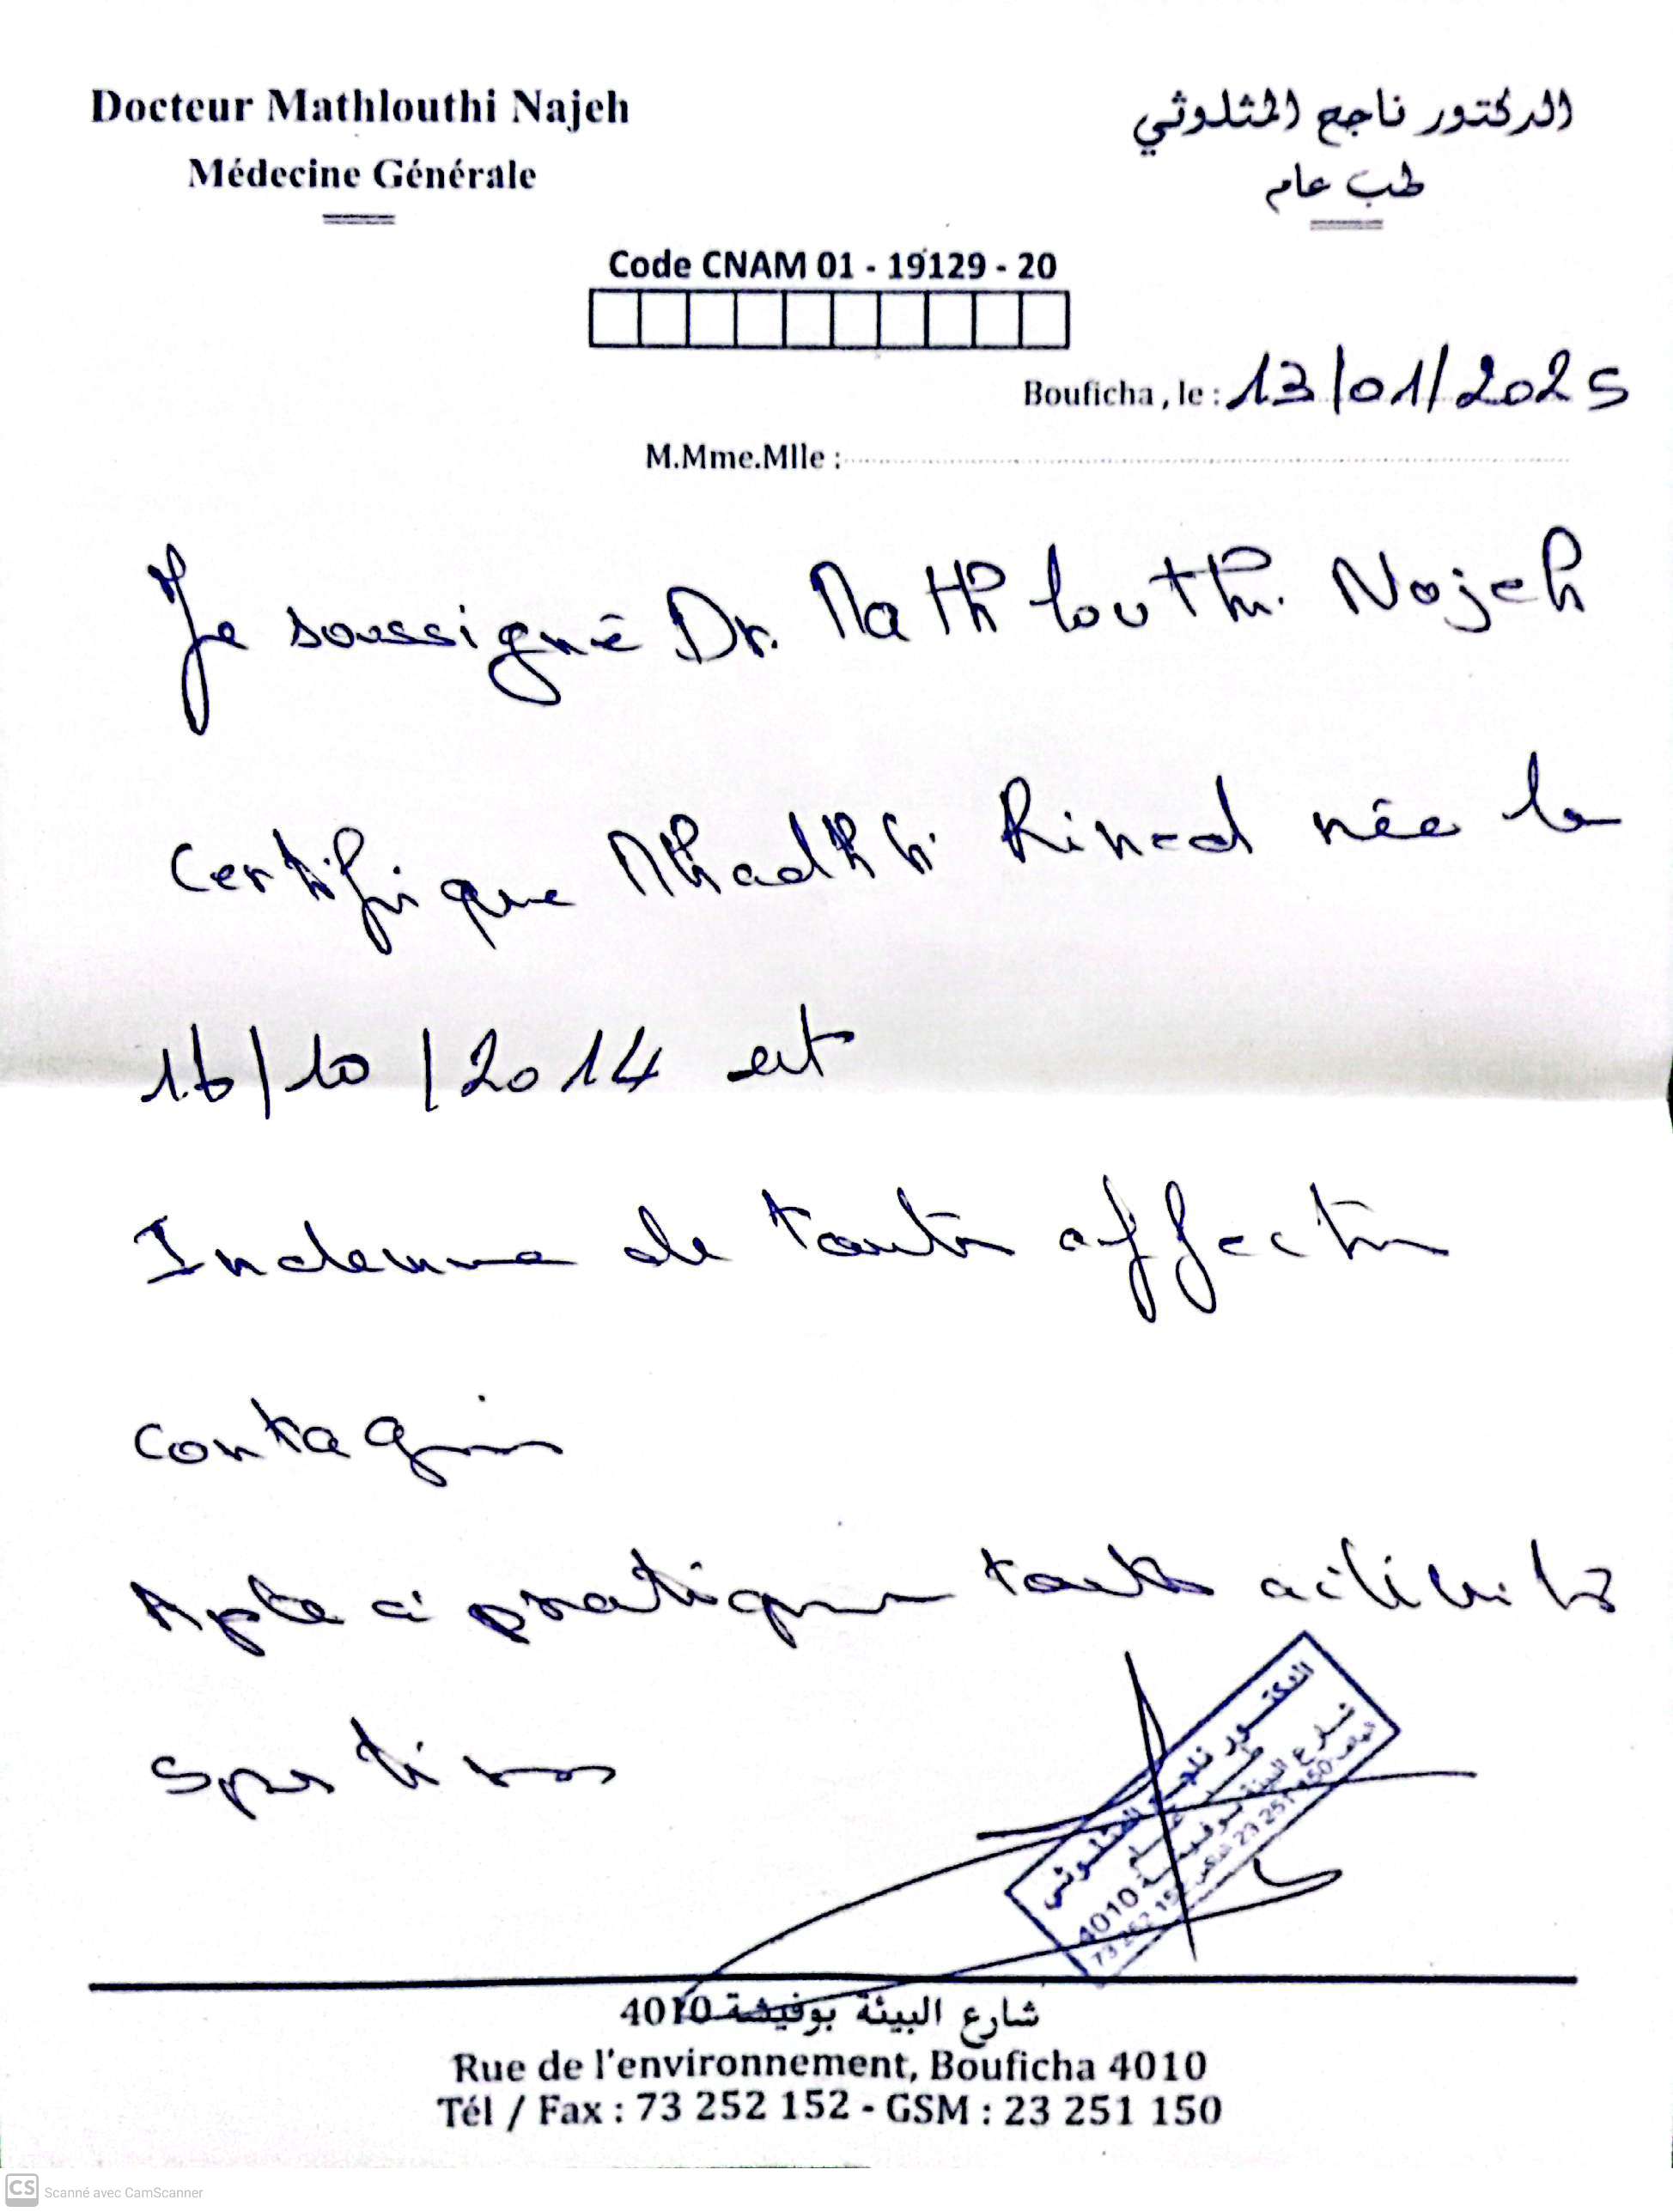 Docteur Mathlouthi Najeh
الدكتور ناجح المثلوثي
Médecine Générale
طب عام
Code CNAM 01 - 19129 - 20
Bouficha, le : 13/01/2025
M.Mme.Mlle :
Je soussigné Dr. Mathlouthi Najeh
Certifique née le
16/10/2014 est
Indemne de toute affection
contagieuse
Apte à pratiquer toute activités
Sportives
الدكتور ناجح المثلوثي
طب عام
شارع البيئة بوفيشة 4010
شارع البيئة بوفيشة 4010
Rue de l'environnement, Bouficha 4010
Tél / Fax : 73 252 152 - GSM : 23 251 150
CS Scanné avec CamScanner